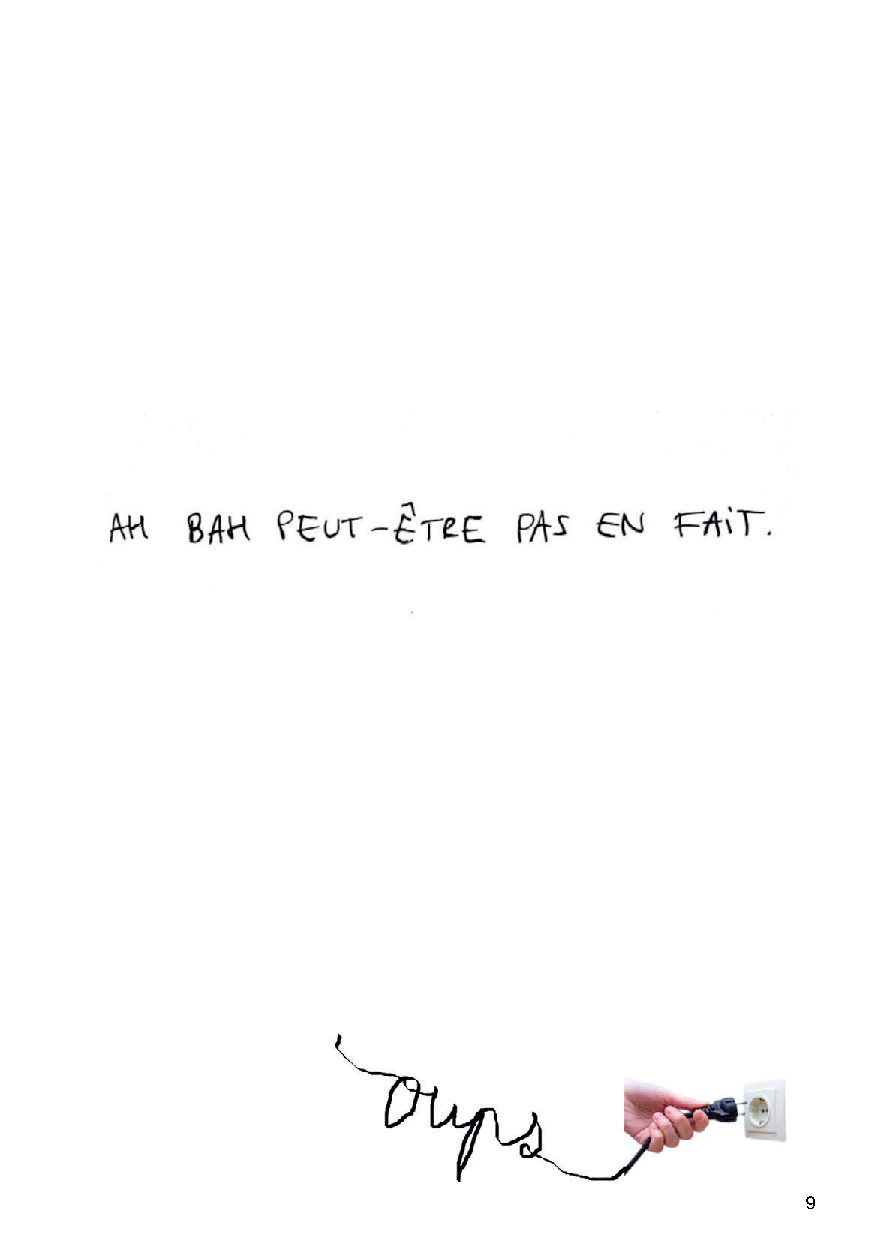 AH BAH PEUT-ÊTRE PAS EN FAiT.
oups
9